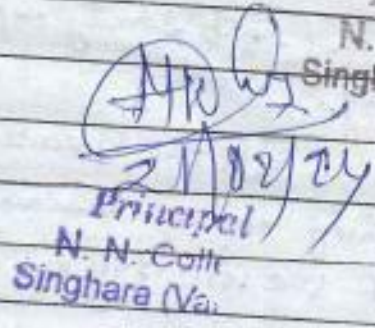 N.
Singh
21/02/24
Principal
N. N. Colle
Singhara (Vai